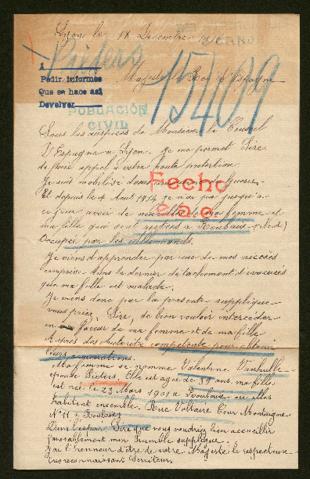 Lyon le 18 Décembre
Pieters
GUERRE
A
Pedir informes
Que se hace así
Devolver
15409
POBLACIÓN
CIVIL
Majesté le Roi d'Espagne
Sous les auspices de Monsieur le Consul
d'Espagne à Lyon. je me permet Sire
de faire appel à votre haute protection.
Je suis mobilisé dans
Et depuis le 4 Aout 1914 je n'ai pas jusqu'à
ce jour avoir de nouvelles de ma femme et
ma fille qui sont restées à Roubaix (Nord)
Occupée par les allemands.
Fecho
Je viens d'apprendre par une de mes nièces
comprise dans le dernier détachement d'évacués
que ma fille est malade.
Je viens donc par la présente supplique
vous prier, Sire, de bien vouloir intercéder
en faveur de ma femme et de ma fille
Auprès des Autorités compétente pour obtenir
leurs
Ma femme se nomme Valentine
épouse Pieters. Elle est agée de 39 ans. ma fille
est née le 23 Mars 1901 à Roubaix ou elles
habitent ensemble. Rue Voltaire Cour Montaigne
N° 11 à Roubaix
Dans l'espoir Sire que vous voudrez bien accueillir
favorablement mon humble supplique.
J'ai l'honneur d'être de votre Majesté le respectueux
très reconnaissant Serviteur.